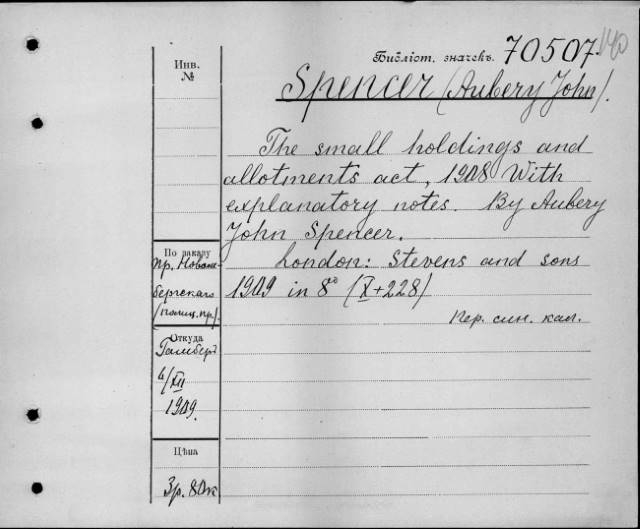 Библіот. значекъ. 70507 140
Инв.
№
Spencer (Aubery John).
The small holdings and
allotments act, 1908 With
explanatory notes. By Aubery
John Spencer.
По заказу
пр. Новом-
бергскаго
(полиц. пр.).
London: Stevens and sons
1909 in 8° (X+228)
Пер. син. кал.
Откуда
Гамберг
6/XII
1909.
Цѣна
3р. 80к